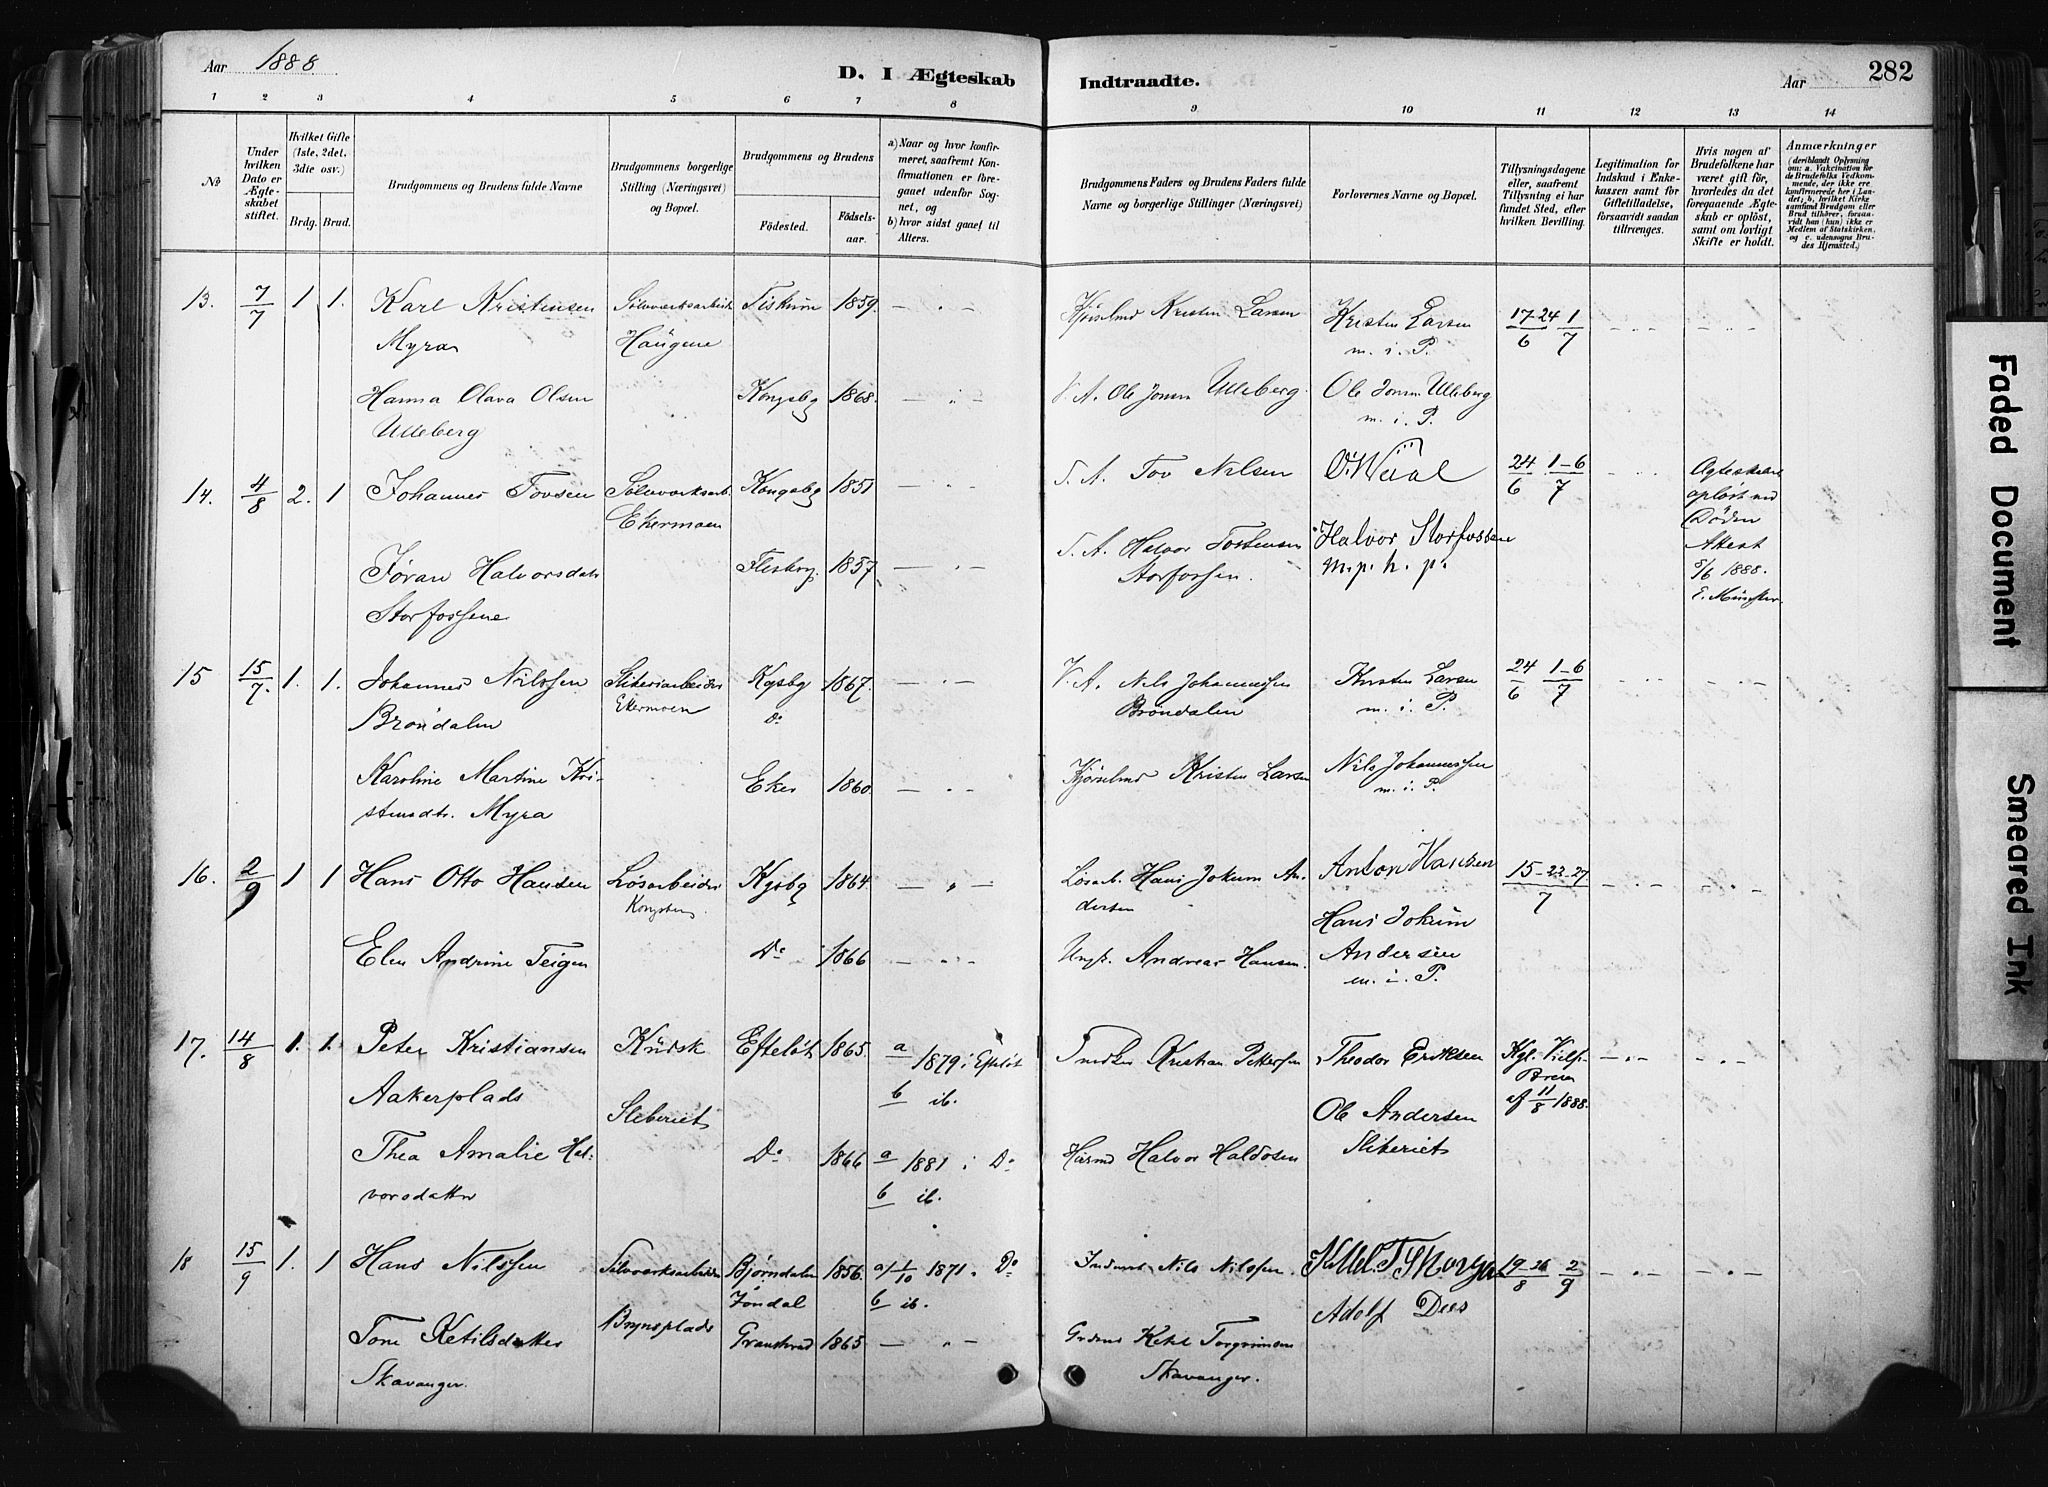 Aar 1888
D. I Ægteskab
Indtraadte.
Aar
282
1 2 3 4 5 6 7 8 9 10 11 12 13 14
No
Under
hvilken
Dato er
Ægte-
skabet
stiftet.
Hvilket Gifte
(1ste, 2det,
3die osv.)
Brdg. Brud.
Brudgommens og Brudens fulde Navne
Brudgommens borgerlige
Stilling (Næringsvei)
og Bopæl.
Brudgommens og Brudens
Fødested.
Fødsels-
aar.
a) Naar og hvor konfir-
meret, saafremt Kon-
firmationen er fore-
gaaet udenfor Sog-
net, og
b) hvor sidst gaaet til
Alters.
Brudgommens Faders og Brudens Faders fulde
Navne og borgerlige Stillinger (Næringsvei)
Forlovernes Navne og Bopæl.
Tillysningsdagene
eller, saafremt
Tillysning ei har
fundet Sted, efter
hvilken Bevilling.
Legitimation for
Indskud i Enke-
kassen samt for
Giftetilladelse,
forsaavidt saadan
tiltrænges.
Hvis nogen af
Brudefolkene har
været gift før,
hvorledes da det
foregaaende Ægte-
skab er opløst,
samt om lovligt
Skifte er holdt.
Anmærkninger
(deriblandt Oplysning
om: a. Vakcination for
de Brudefolks Vedkom-
mende, der ikke ere
konfirmerede her i Lan-
det; b, hvilket Kirke
samfund Brudgom eller
Brud tilhører, forsaa-
vidt han (hun) ikke er
Medlem af Statskirken,
og c. udensogns Bru-
des Hjemsted.)
13. 7/7 1 1. Karl Kristensen Sølvværksarbeid Fiskum 1859. Kjørselmd Kristen Larsen Kristen Larsen 17-24/6 1/7
Myra Haugene m. i. P.
Hanna Olava Olsen Kongsbg 1868. V. A. Ole Jonsen Ulleberg. Ole Jonsen Ulleberg
Ulleberg m. i. P.
14. 4/8 2. 1 Johannes Tovsen Sølvværksarb. Kongsbg 1851 S. A. Tov Nilsen O. Waal 24/6 1-6/7 Ægteskabet
Ekermoen opløst ved
Døden
Jøran Halvorsdatr Flesberg. 1857. S. A. Halvor Tostensen Halvor Storfossen Attest
Storfossene Storfossen. m. p. h. p. 5/6 1888.
E. Münster.
15 15/7. 1. 1. Johannes Nilssen Sliberiarbeider Kgsbg 1867. V. A. Nils Johannessen Kristen Larsen 24/6 1-6/7
Brøndalen Ekermoen Do Brøndalen m. i. P.
Karoline Martine Kri- Eker 1860. Kjørselmd Kristen Larsen Nils Johannessen
stensdtr. Myra m. i. P.
16. 2/9 1 1 Hans Otto Hansen Løsarbeider Kgsbg 1864. Løsarb. Hans Jokum An- Anton Hansen 15-22-27/7
Kongsberg dersen Hans Jokum
Elen Andrine Teigen Do 1866 Andreas Hansen. Andersen
m. i. P.
17. 14/8 1. 1. Peter Kristiansen Kudsk Efteløt 1865. a 1879 i Efteløt Snedker Kristian Pettersen Theodor Eriksen Kgl.
Aakerplads Sliberiet b ib. Ole Andersen af 11/8 1888.
Thea Amalie Hal- Do 1866 a 1881 i Do Halvor Haldosen Sliberiet
vorsdatter b ib.
18 15/9 1. 1 Hans Nilssen Sølvværksarbeider Bjørndalen 1856. a/ 1/10 1871. Do Nils Nilssen. 19-26/8 2/9
Jondal b ib. Adolf Dees
Tone Ketilsdatter Brynsplads Gransherad 1865 Ketil Torgrimsen
Skavanger. Skavanger.
Faded Document
Smeared Ink